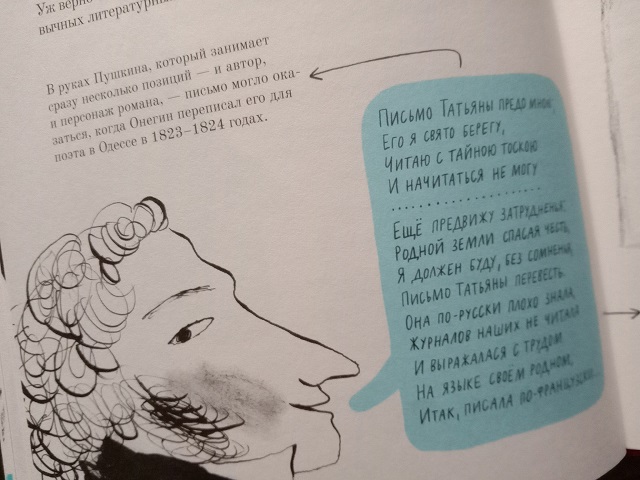 Уж верно
вычных литературны
В руках Пушкина, который занимает
сразу несколько позиций — и автор,
и персонаж романа, — письмо могло ока-
заться, когда Онегин переписал его для
поэта в Одессе в 1823–1824 годах.
Письмо Татьяны предо мною;
Его я свято берегу,
Читаю с тайною тоскою
И начитаться не могу
...................
Ещё предвижу затрудненья:
Родной земли спасая честь,
Я должен буду, без сомненья,
Письмо Татьяны перевесть.
Она по-русски плохо знала,
Журналов наших не читала
И выражалася с трудом
На языке своём родном,
Итак, писала по-французски...